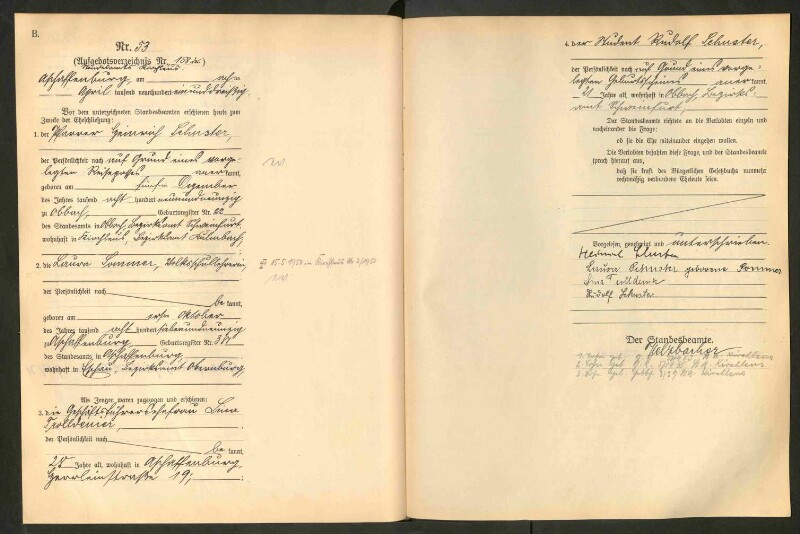 B.
Nr. 53
(Aufgebotsverzeichnis Nr. 158
Aschaffenburg, am acht
April tausend neunhundert einunddreißig.
Vor dem unterzeichneten Standesbeamten erschienen heute zum
Zwecke der Eheschließung:
1. der Pfarrer Heinrich Schuster,
der Persönlichkeit nach auf Grund eines vorge-
legten Reisepasses anerkannt,
geboren am fünften Dezember
des Jahres tausend acht hundert neunundneunzig
zu Obbach, Geburtsregister Nr. 22
des Standesamts in Obbach, Bezirksamt Schweinfurt,
wohnhaft in Kirchleus, Bezirksamt Kulmbach,
2. die Laura Sommer, Volksschullehrerin,
der Persönlichkeit nach
bekannt,
geboren am ersten Oktober
des Jahres tausend acht hundert siebenundneunzig
zu Aschaffenburg, Geburtsregister Nr.
des Standesamts in Aschaffenburg,
wohnhaft in Eschau, Bezirksamt Obernburg
Als Zeugen waren zugezogen und erschienen:
3. die Geschäftsführersehefrau
der Persönlichkeit nach
bekannt,
25 Jahre alt, wohnhaft in Aschaffenburg,
Herrleinstraße 19;
4. der Student Rudolf Schuster,
der Persönlichkeit nach auf Grund eines vorge-
legten Geburtsscheines anerkannt,
21 Jahre alt, wohnhaft in Obbach, Bezirks-
amt Schweinfurt,
Der Standesbeamte richtete an die Verlobten einzeln und
nacheinander die Frage:
ob sie die Ehe miteinander eingehen wollen.
Die Verlobten bejahten diese Frage, und der Standesbeamte
sprach hierauf aus,
daß sie kraft des Bürgerlichen Gesetzbuchs nunmehr
rechtmäßig verbundene Eheleute seien.
Vorgelesen, genehmigt und unterschrieben.
Schuster
Laura Schuster geborene Sommer
Rudolf Schuster
Der Standesbeamte.